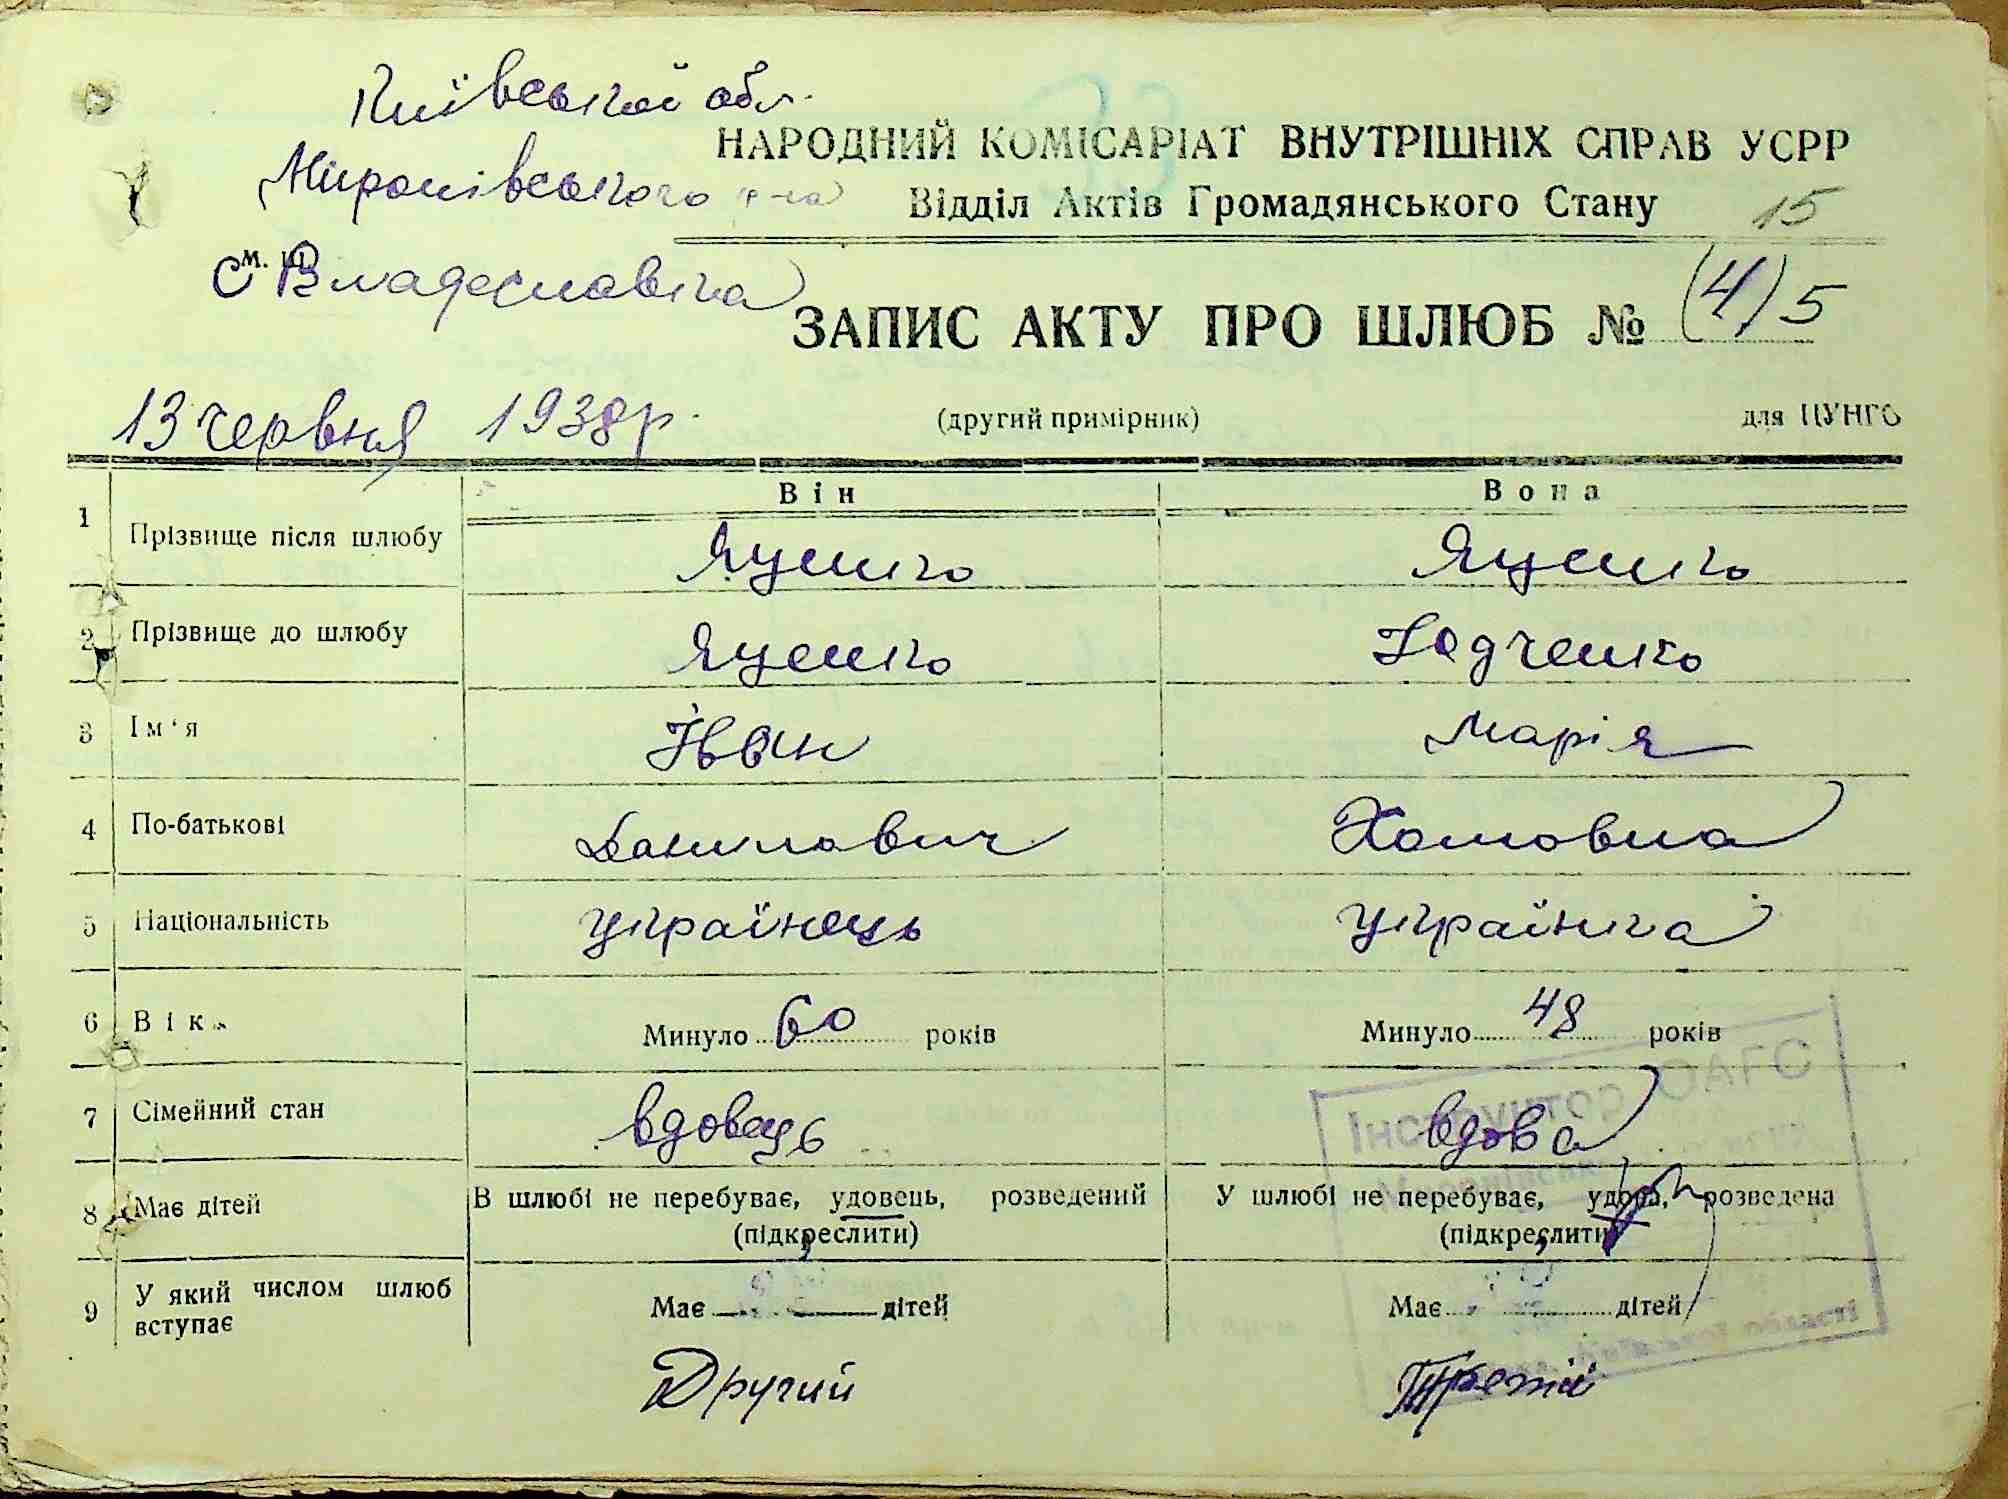 Київської обл.
Миронівського р-на
НАРОДНИЙ КОМІСАРІАТ ВНУТРІШНІХ СПРАВ УСРР
Відділ Актів Громадянського Стану 15
с. Владеславівка
ЗАПИС АКТУ ПРО ШЛЮБ № (4) 5
13 червня 1938 р.
(другий примірник) для ЦУНГО
Він Вона
1 Прізвище після шлюбу Яценко Яценко
2 Прізвище до шлюбу Яценко
3 Ім'я Іван Марія
4 По-батькові Данилович Хомовна
5 Національність українець українка
6 Вік Минуло 60 років Минуло 48 років
7 Сімейний стан вдовець вдова
8 Має дітей В шлюбі не перебуває, удовець, розведений У шлюбі не перебуває, удова, розведена
(підкреслити) (підкреслити)
9 У який числом шлюб вступає Має дітей Має дітей
Другий Третій
Інструктор ОАГС
області